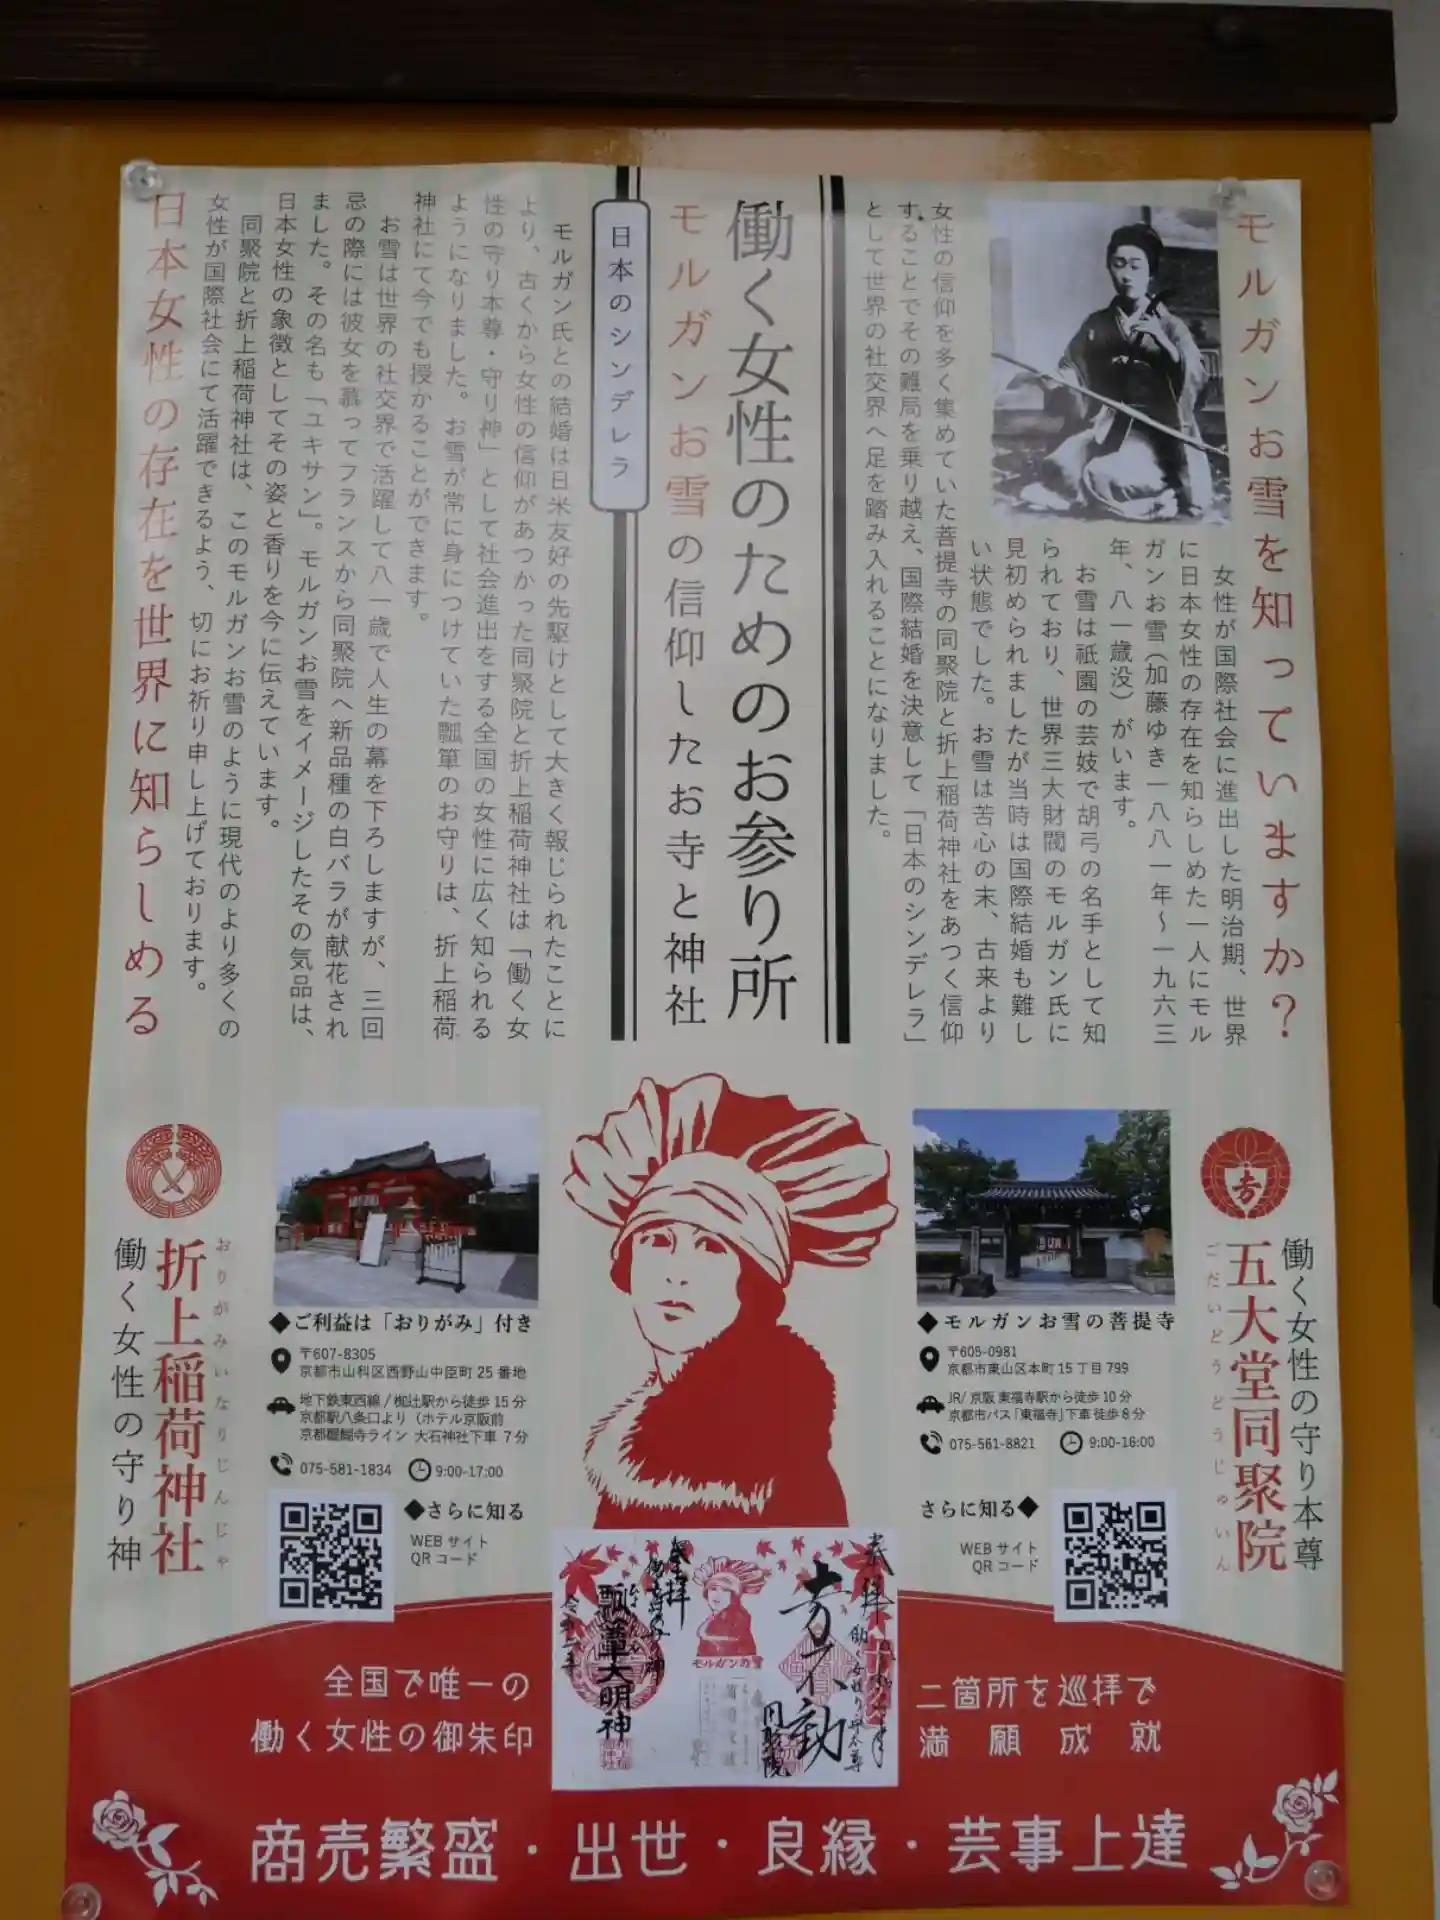 モルガンお雪を知っていますか?
女性が国際社会に進出した明治期、世界
に日本女性の存在を知らしめた一人にモル
ガンお雪(加藤ゆき一八八一年～一九六三
年、八一歳没)がいます。
お雪は祇園の芸妓で胡弓の名手として知
られており、世界三大財閥のモルガン氏に
見初められましたが当時は国際結婚も難し
い状態でした。お雪は苦心の末、古来より
女性の信仰を多く集めていた菩提寺の同聚院と折上稲荷神社をあつく信仰
することでその難局を乗り越え、国際結婚を決意して「日本のシンデレラ」
として世界の社交界へ足を踏み入れることになりました。
働く女性のためのお参り所
モルガンお雪の信仰したお寺と神社
日本のシンデレラ
モルガン氏との結婚は日米友好の先駆けとして大きく報じられたことに
より、古くから女性の信仰があつかった同聚院と折上稲荷神社は「働く女
性の守り本尊・守り神」として社会進出をする全国の女性に広く知られる
ようになりました。お雪が常に身につけていた瓢箪のお守りは、折上稲荷
神社にて今でも授かることができます。
お雪は世界の社交界で活躍して八一歳で人生の幕を下ろしますが、三回
忌の際には彼女を慕ってフランスから同聚院へ新品種の白バラが献花され
ました。その名も「ユキサン」。モルガンお雪をイメージしたその気品は、
日本女性の象徴としてその姿と香りを今に伝えています。
同聚院と折上稲荷神社は、このモルガンお雪のように現代のより多くの
女性が国際社会にて活躍できるよう、切にお祈り申し上げております。
日本女性の存在を世界に知らしめる
働く女性の守り本尊
五大堂同聚院
ごだいどうどうじゅいん
◆モルガンお雪の菩提寺
〒605-0981
京都市東山区本町15丁目799
JR/京阪 東福寺駅から徒歩10分
京都市バス「東福寺」下車 徒歩8分
075-561-8821 9:00-16:00
さらに知る◆
WEBサイト
QRコード
おりがみいなりじんじゃ
折上稲荷神社
働く女性の守り神
◆ご利益は「おりがみ」付き
〒607-8305
京都市山科区西野山中臣町25番地
地下鉄東西線/椥辻駅から徒歩15分
京都駅八条口より(ホテル京阪前
京都醍醐寺ライン 大石神社下車 7分
075-581-1834 9:00-17:00
◆さらに知る
WEBサイト
QRコード
奉拝
働く女性の守り本尊
芳不動
同聚院
モルガンお雪
奉拝
働く女性の守り神
瓢箪大明神
二箇所を巡拝で
満願成就
全国で唯一の
働く女性の御朱印
商売繁盛・出世・良縁・芸事上達